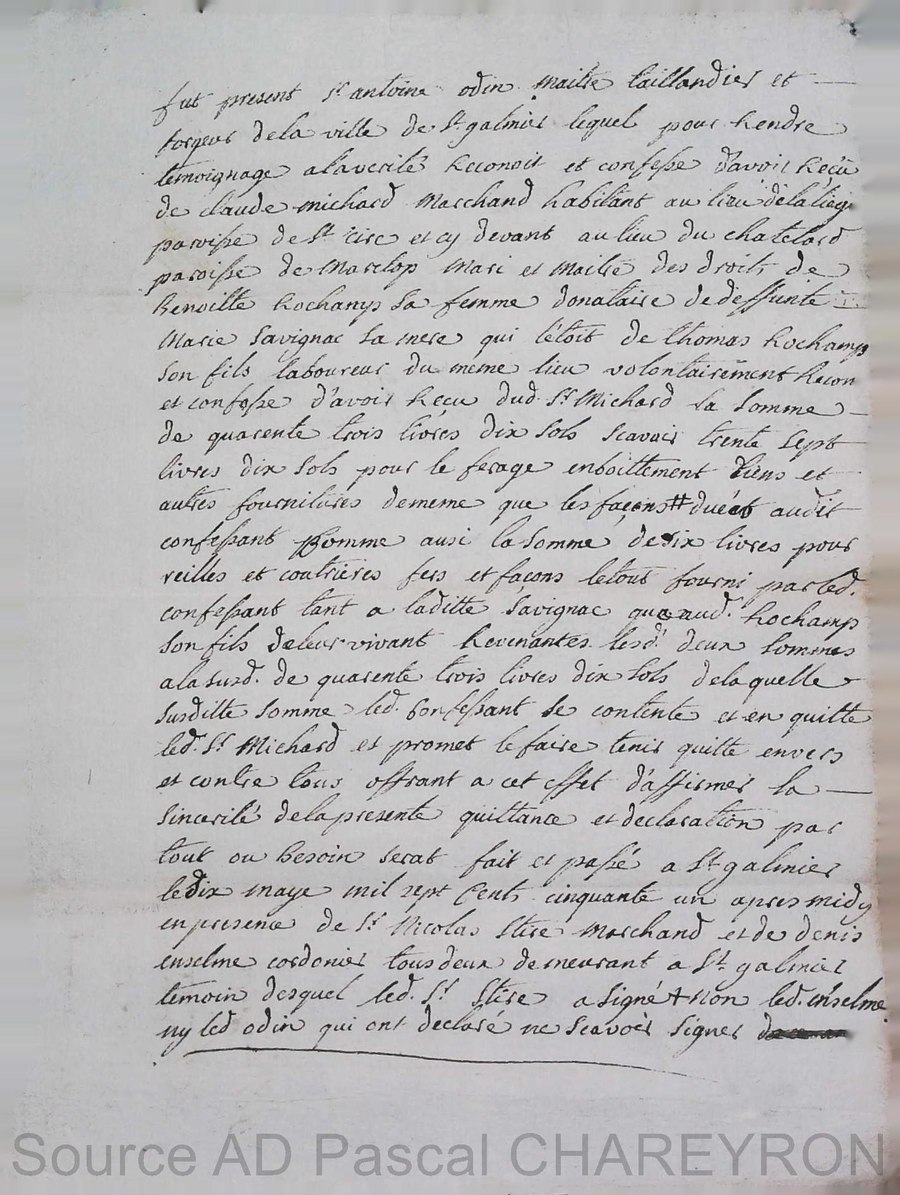 fut present Sr antoine odin maitre taillandier et
forgeur dela ville de St galmier lequel pour Rendre
temoignage alaverité Reconoit et confesse d'avoir Reçü
de claude michard Marchand habitant au lieu delaliegi
paroisse de St Circ et cy devant au lieu du chatelard
paroisse de Marclop Mari et Maitre des droits de
Benoitte Rochamps sa femme donataire de deffunte
Marie Savignac sa mere qui l'étoit de thomas Rochamps
son fils laboureur du même lieu volontairement Recon
et confesse d'avoir Reçu dud. Sr Michard la somme
de quarente trois livres dix sols scavoir trente sept
livres dix sols pour le ferage enboittement liens et
autres fournitures dememe que les façons # duées audit
confessant comme ausi la somme de six livres pour
reilles et coutrieres fers et façons letout fourni parled.
confessant tant a laditte Savignac qua aud. Rochamp
son fils deleur vivant Revenantes lesd. deux sommes
alasusd. de quarente trois livres dix sols delaquelle
susditte somme led. Confessant se contente et en quitte
led. Sr Michard et promet le faire tenir quitte envers
et contre tous offrant a cet effet d'affirmer la
sincerité delapresente quittance et declaration par
tout ou besoin serat fait et passé a St galmier
ledix maye mil sept Cents cinquante un apres midy
enpresence de Sr Nicolas Stire Marchand et de denis
enselme cordonier tousdeux demeurant a St galmier
temoin desquel led. Sr Stire a signé + non led. enselme
ny led odin qui ont declaré ne scavoir signer
Source AD Pascal CHAREYRON